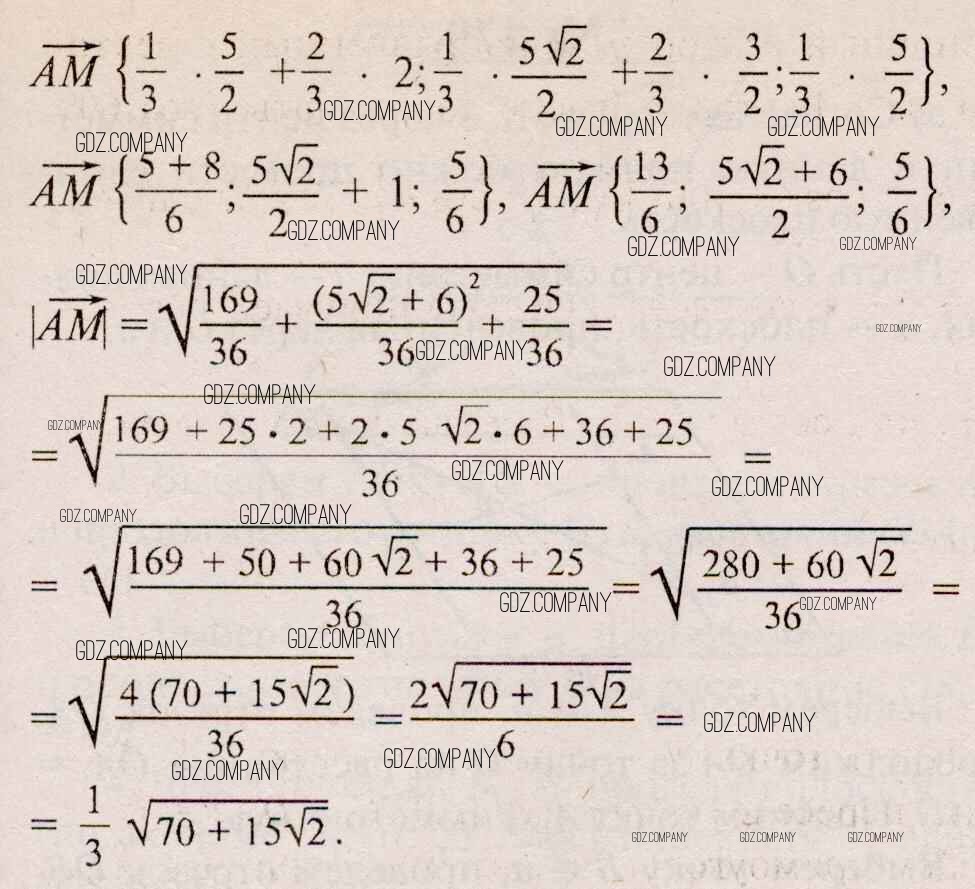 $\overrightarrow{AM} \left\{ \frac{1}{3} \cdot \frac{5}{2} + \frac{2}{3} \cdot 2; \frac{1}{3} \cdot \frac{5\sqrt{2}}{2} + \frac{2}{3} \cdot \frac{3}{2}; \frac{1}{3} \cdot \frac{5}{2} \right\},$
GDZ.COMPANY
GDZ.COMPANY GDZ.COMPANY
GDZ.COMPANY
$\overrightarrow{AM} \left\{ \frac{5+8}{6}; \frac{5\sqrt{2}}{2} + 1; \frac{5}{6} \right\}, \overrightarrow{AM} \left\{ \frac{13}{6}; \frac{5\sqrt{2}+6}{2}; \frac{5}{6} \right\},$
GDZ.COMPANY GDZ.COMPANY GDZ.COMPANY
GDZ.COMPANY
$|\overrightarrow{AM}| = \sqrt{\frac{169}{36} + \frac{(5\sqrt{2}+6)^2}{36} + \frac{25}{36}} =$
GDZ.COMPANY
GDZ.COMPANY GDZ.COMPANY
GDZ.COMPANY
GDZ.COMPANY
$= \sqrt{\frac{169 + 25 \cdot 2 + 2 \cdot 5 \sqrt{2} \cdot 6 + 36 + 25}{36}} =$
GDZ.COMPANY GDZ.COMPANY
GDZ.COMPANY GDZ.COMPANY
$= \sqrt{\frac{169 + 50 + 60\sqrt{2} + 36 + 25}{36}} = \sqrt{\frac{280 + 60\sqrt{2}}{36}} =$
GDZ.COMPANY GDZ.COMPANY
GDZ.COMPANY GDZ.COMPANY
$= \sqrt{\frac{4(70 + 15\sqrt{2})}{36}} = \frac{2\sqrt{70 + 15\sqrt{2}}}{6} =$
GDZ.COMPANY
GDZ.COMPANY GDZ.COMPANY
$= \frac{1}{3} \sqrt{70 + 15\sqrt{2}}.$
GDZ.COMPANY GDZ.COMPANY GDZ.COMPANY